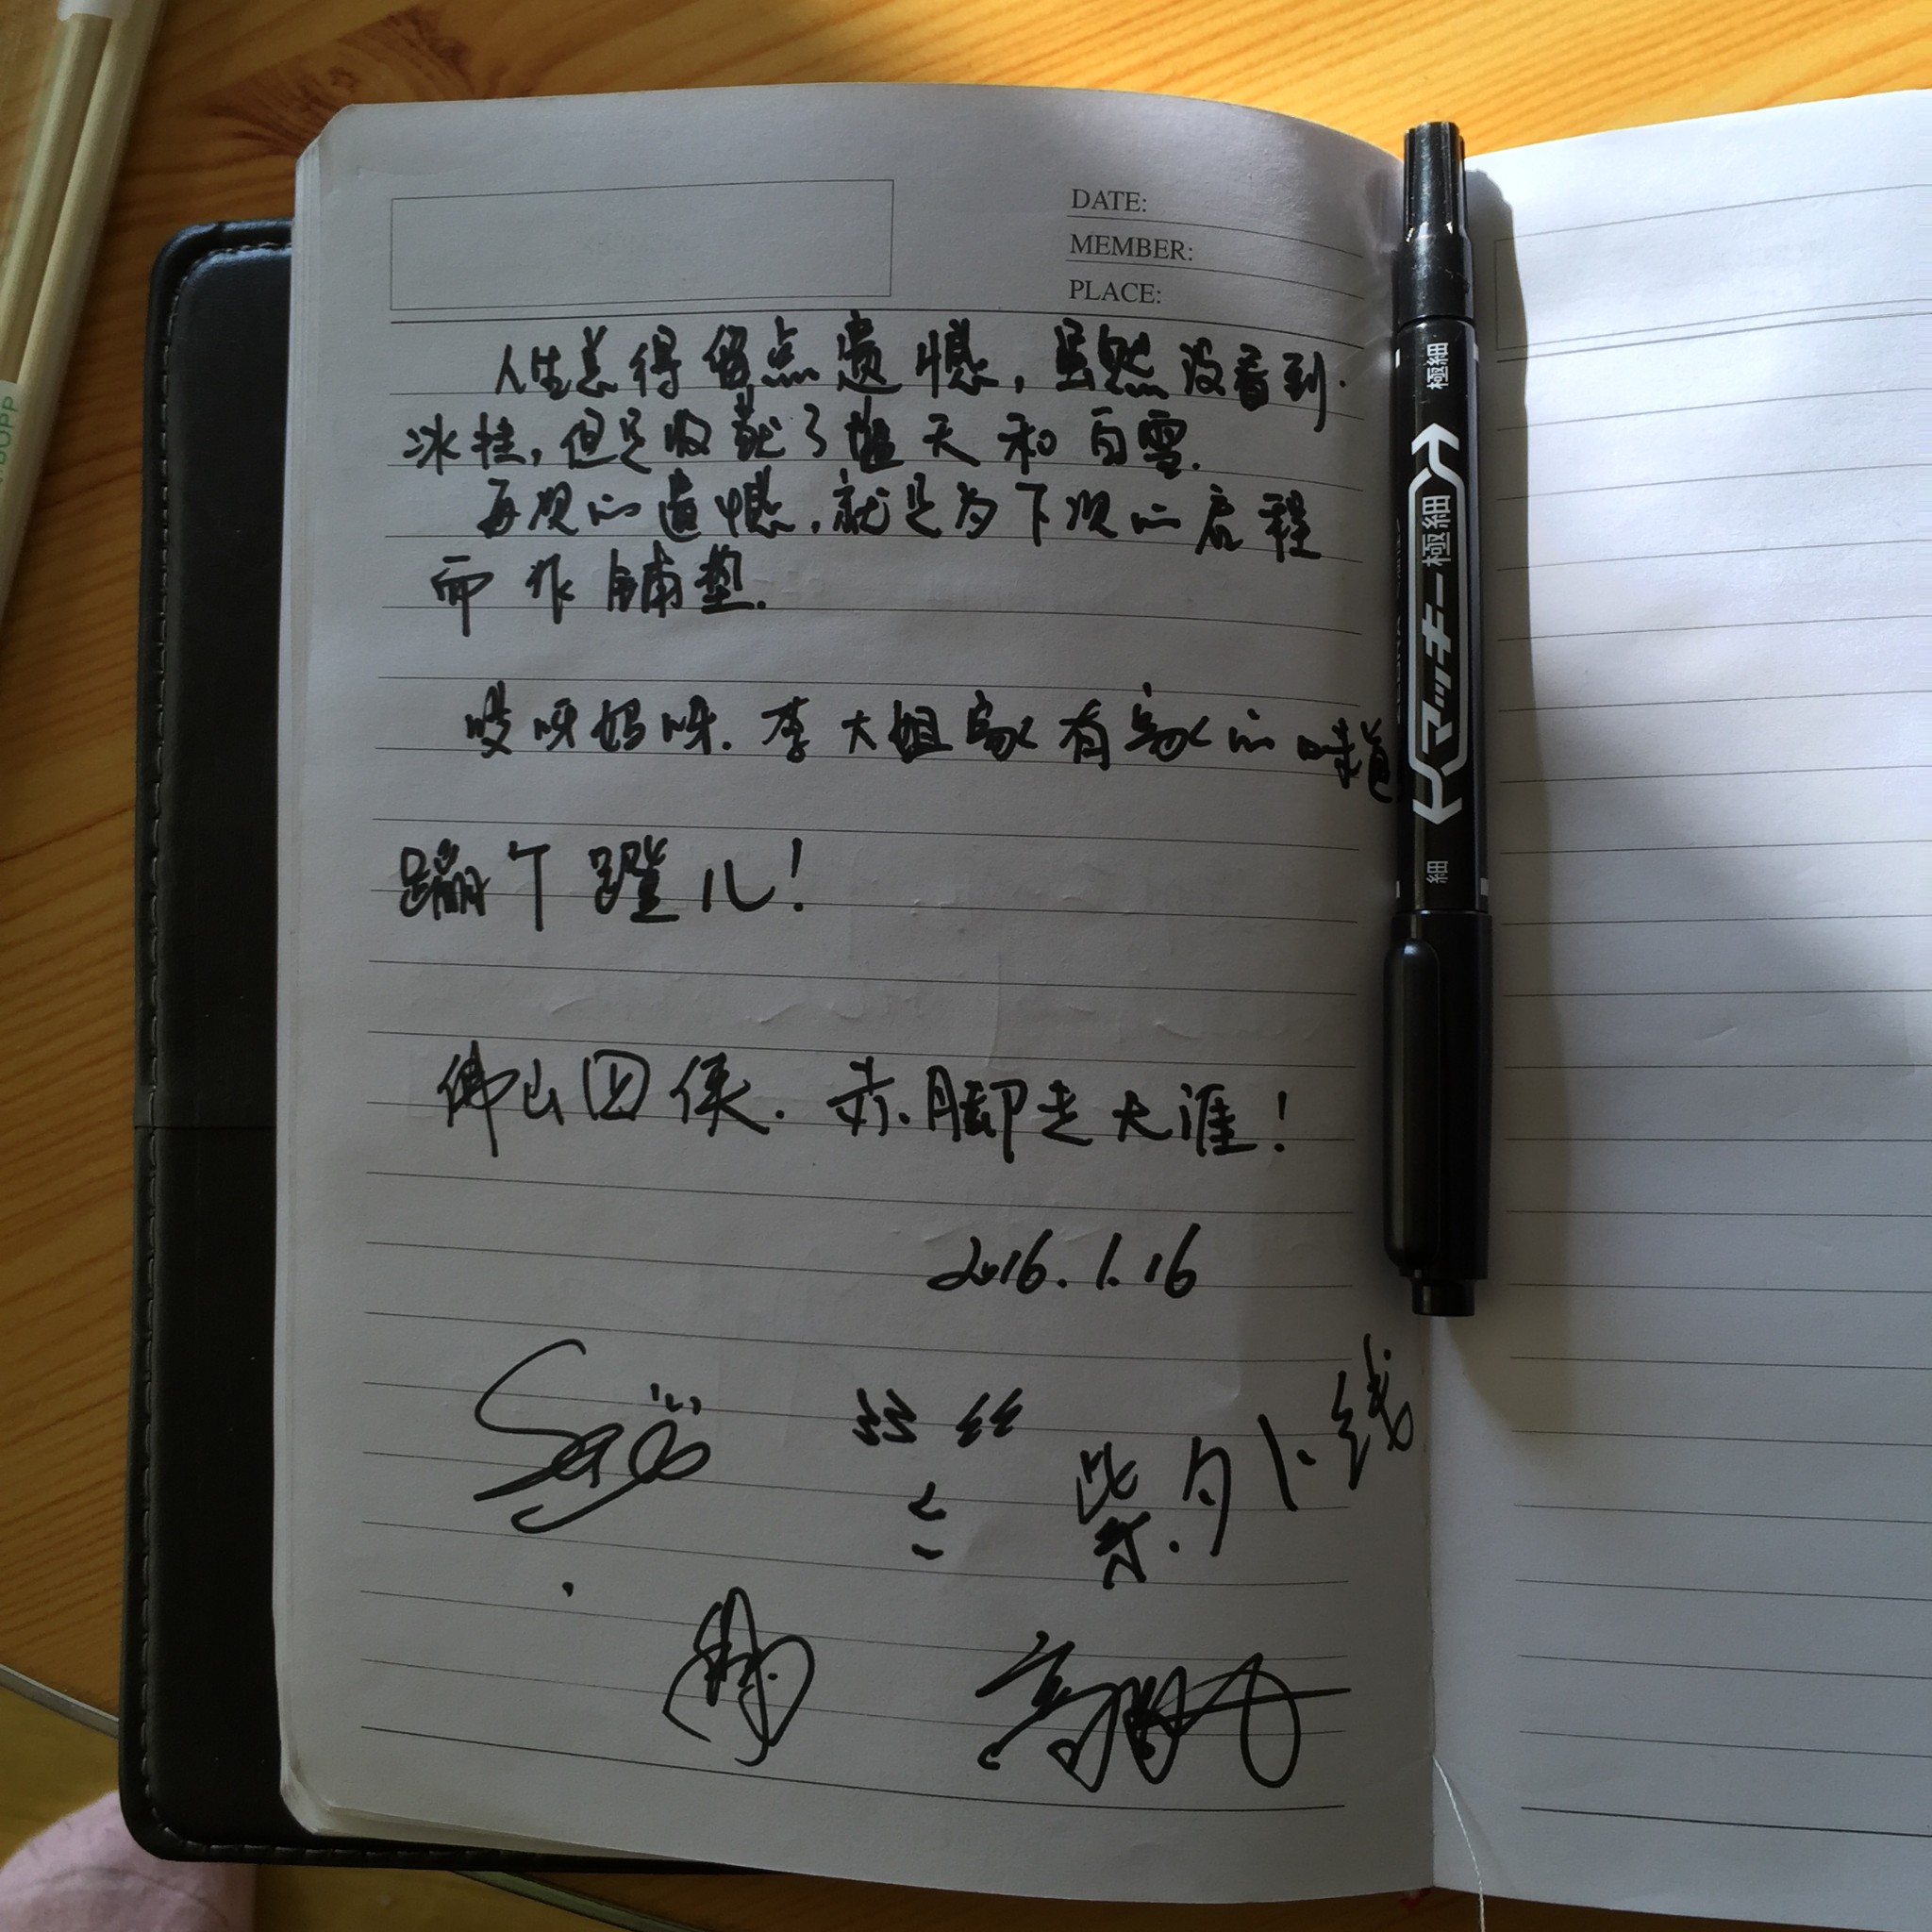 DATE:
MEMBER:
PLACE:
人生总得留点遗憾,虽然没看到
冰挂,但是收获了蓝天和白雪.
每次的遗憾,就是为下次的启程
而作铺垫.
哎呀妈呀.李大姐家有家的味道
蹦个蹬儿!
佛山四侠.赤脚走天涯!
2016.1.16
マッキー極細
極細
細